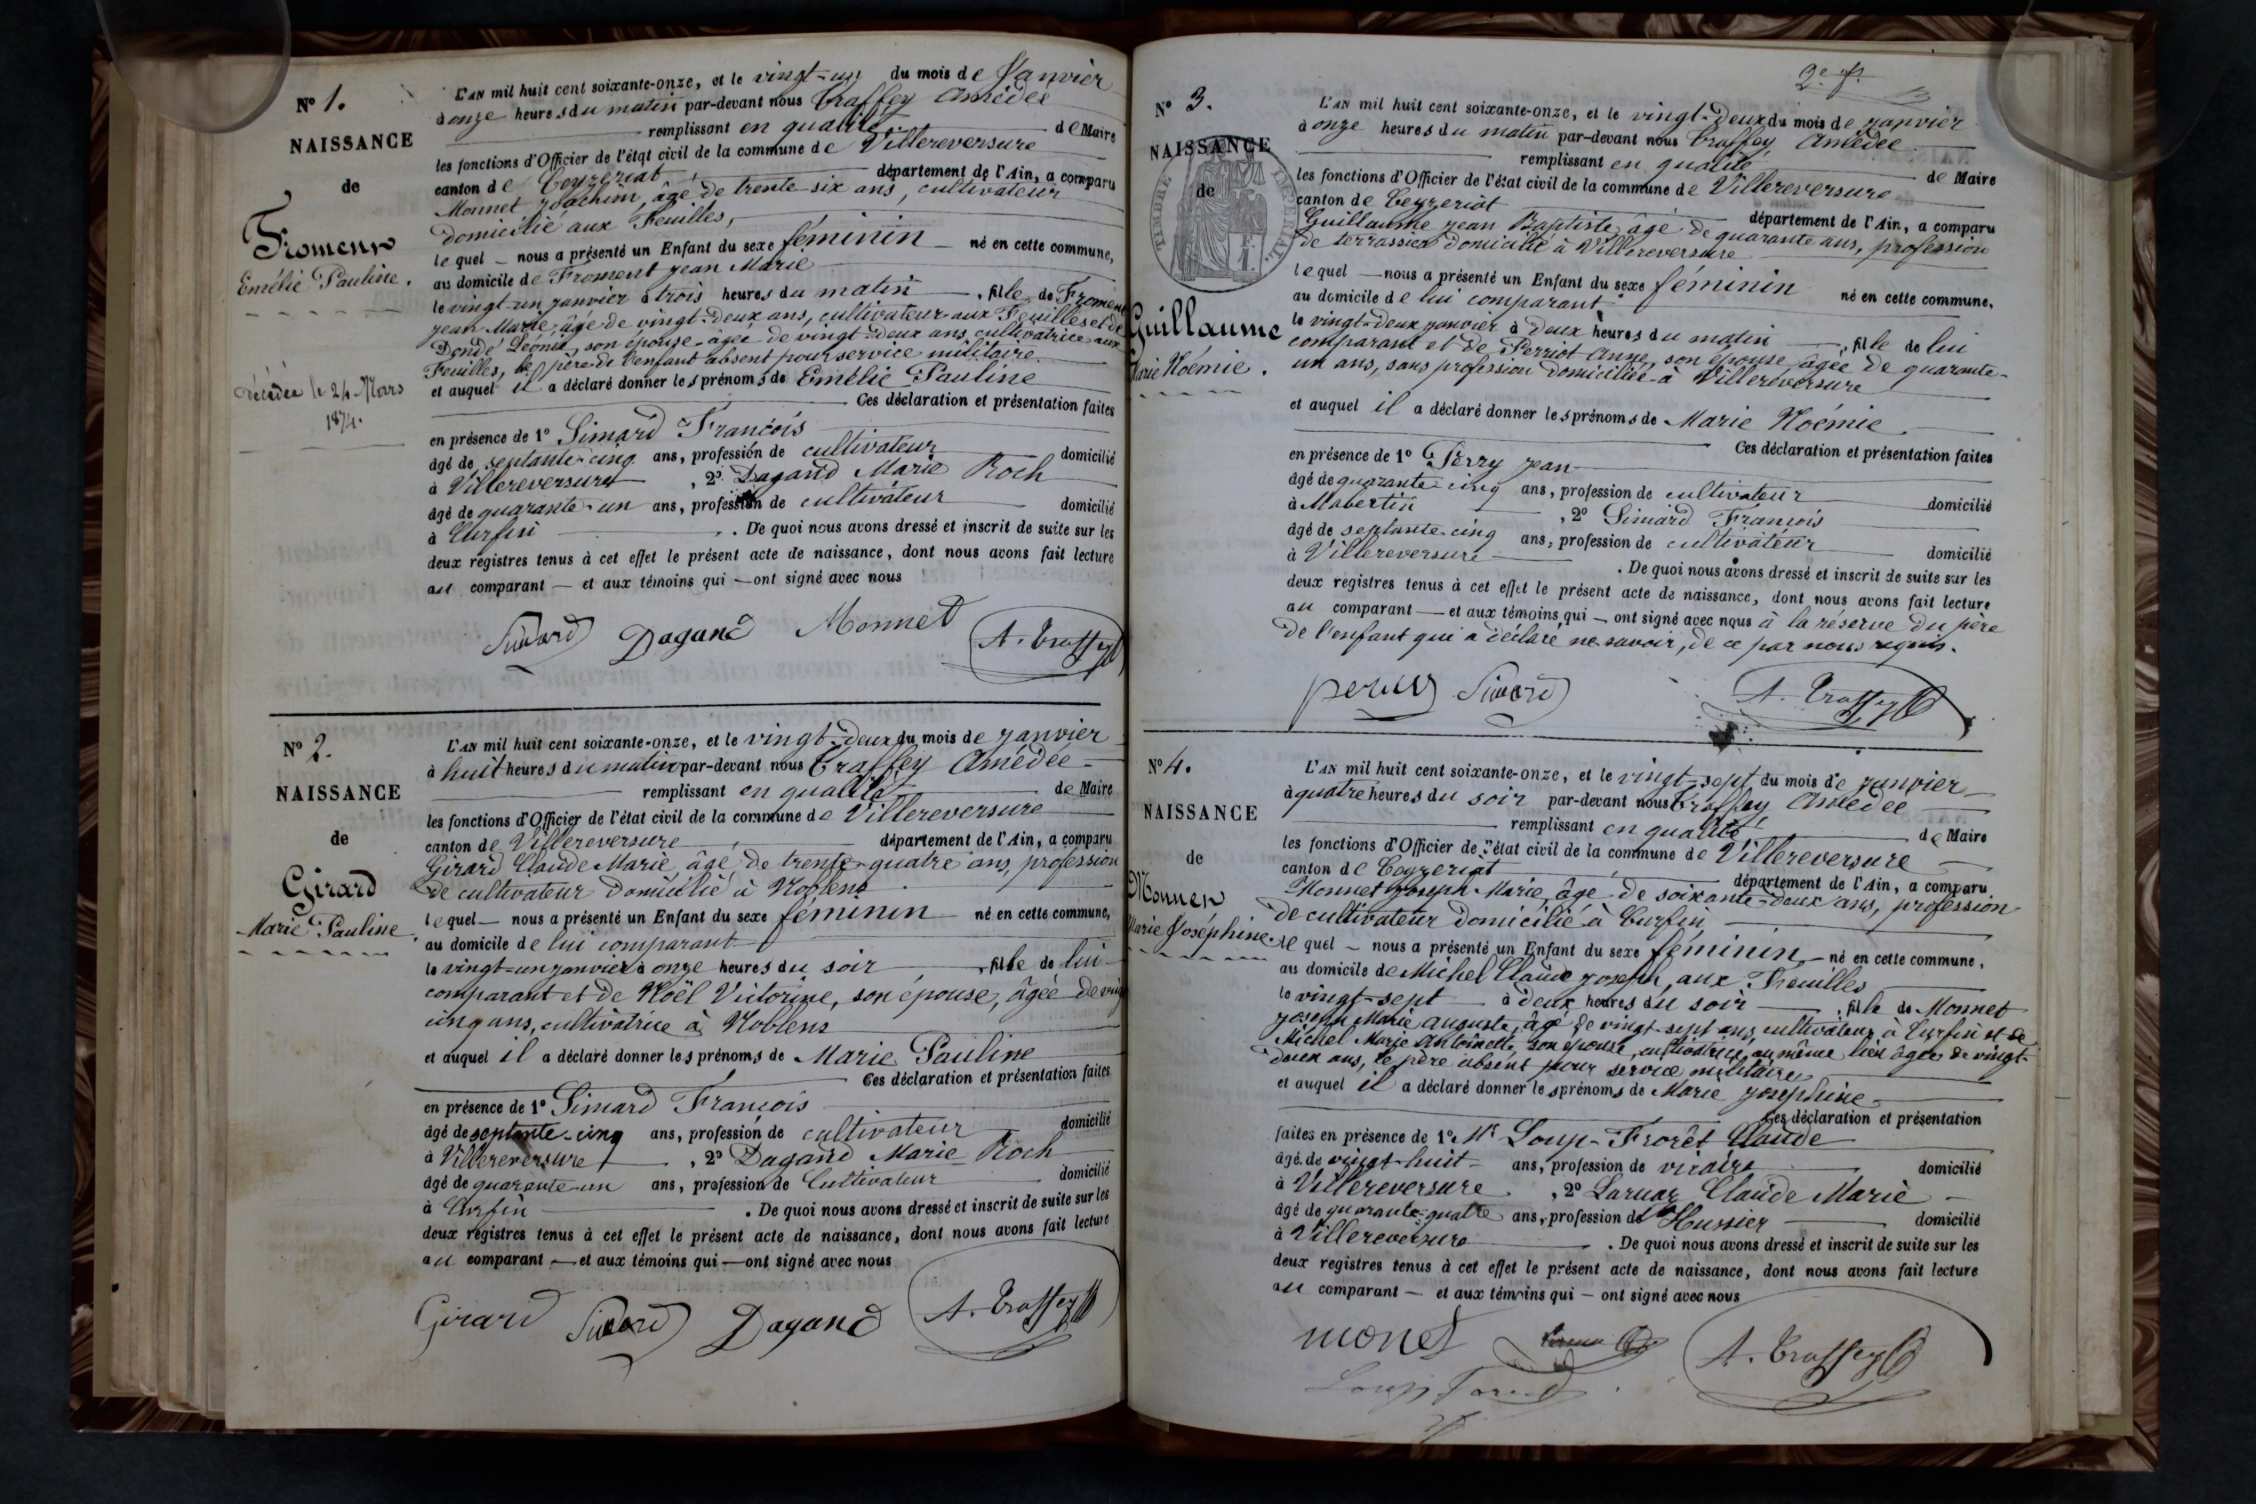 N° 1.
NAISSANCE
de
Froment
Emélie Pauline.
Décédée le 24 Mars
1874.
L'AN mil huit cent soixante-onze, et le vingt-un du mois de Janvier
à onze heures du matin par-devant nous Traffey Amédée
remplissant en qualité de Maire
les fonctions d'Officier de l'état civil de la commune de Villereversure
canton de Ceyzeriat département de l'Ain, a comparu
Monnet Joachim, âgé de trente six ans, cultivateur
domicilié aux Feuilles,
lequel – nous a présenté un Enfant du sexe féminin – né en cette commune,
au domicile de Froment Jean Marie
le vingt-un janvier à trois heures du matin, fille de Froment
Jean Marie, âgé de vingt-deux ans, cultivateur aux Feuilles et de
Dondé Léonie, son épouse âgée de vingt-deux ans, cultivatrice aux
Feuilles, le père de l'enfant absent pour service militaire.
et auquel il a déclaré donner les prénoms de Emélie Pauline
Ces déclaration et présentation faites
en présence de 1° Simard François
âgé de septante-cinq ans, profession de cultivateur domicilié
à Villereversure, 2° Dagand Marie Roch
âgé de quarante-un ans, profession de cultivateur domicilié
à Curfin. De quoi nous avons dressé et inscrit de suite sur les
deux registres tenus à cet effet le présent acte de naissance, dont nous avons fait lecture
au comparant — et aux témoins qui — ont signé avec nous
Simard Dagand Monnet A. Traffey
N° 2.
NAISSANCE
de
Girard
Marie Pauline
L'AN mil huit cent soixante-onze, et le vingt-deux du mois de janvier
à huit heures du matin par-devant nous Traffey Amédée
remplissant en qualité de Maire
les fonctions d'Officier de l'état civil de la commune de Villereversure
canton de Villereversure département de l'Ain, a comparu
Girard Claude Marie, âgé de trente-quatre ans, profession
de cultivateur domicilié à Noblens
lequel — nous a présenté un Enfant du sexe féminin — né en cette commune,
au domicile de lui comparant
le vingt-un janvier à onze heures du soir, fille de lui
comparant et de Noël Victorine, son épouse, âgée de vingt
cinq ans, cultivatrice à Noblens
et auquel il a déclaré donner les prénoms de Marie Pauline
Ces déclaration et présentation faites
en présence de 1° Simard François
âgé de septante-cinq ans, profession de cultivateur domicilié
à Villereversure, 2° Dagand Marie Roch
âgé de quarante-un ans, profession de Cultivateur domicilié
à Curfin. De quoi nous avons dressé et inscrit de suite sur les
deux registres tenus à cet effet le présent acte de naissance, dont nous avons fait lecture
au comparant — et aux témoins qui — ont signé avec nous
Girard Simard Dagand A. Traffey
2e f.
N° 3.
NAISSANCE
de
TIMBRE IMPERIAL
Guillaume
Marie Noémie.
L'AN mil huit cent soixante-onze, et le vingt-deux du mois de janvier
à onze heures du matin par-devant nous Traffey Amédée
remplissant en qualité de Maire
les fonctions d'Officier de l'état civil de la commune de Villereversure
canton de Ceyzeriat département de l'Ain, a comparu
Guillaume Jean Baptiste, âgé de quarante ans, profession
de terrassier domicilié à Villereversure
lequel — nous a présenté un Enfant du sexe féminin né en cette commune,
au domicile de lui comparant
le vingt-deux janvier à deux heures du matin, fille de lui
comparant et de Perriot Anne, son épouse, âgée de quarante-
un ans, sans profession domiciliée à Villereversure
et auquel il a déclaré donner les prénoms de Marie Noémie
Ces déclaration et présentation faites
en présence de 1° Perry Jean
âgé de quarante-cinq ans, profession de cultivateur domicilié
à Mabertin, 2° Simard François
âgé de septante-cinq ans, profession de cultivateur domicilié
à Villereversure. De quoi nous avons dressé et inscrit de suite sur les
deux registres tenus à cet effet le présent acte de naissance, dont nous avons fait lecture
au comparant — et aux témoins qui — ont signé avec nous à la réserve du père
de l'enfant qui a déclaré ne savoir, de ce par nous requis.
Simard A. Traffey
N° 4.
NAISSANCE
de
Monnet
Marie Joséphine.
L'AN mil huit cent soixante-onze, et le vingt-sept du mois de janvier
à quatre heures du soir par-devant nous Traffey Amédée
remplissant en qualité de Maire
les fonctions d'Officier de l'état civil de la commune de Villereversure
canton de Ceyzeriat département de l'Ain, a comparu
Monnet Joseph Marie, âgé de soixante-deux ans, profession
de cultivateur domicilié à Curfin
lequel – nous a présenté un Enfant du sexe féminin – né en cette commune,
au domicile de Michel Claude Joseph, aux Feuilles
le vingt-sept à deux heures du soir, fille de Monnet
Joseph Marie Auguste, âgé de vingt-sept ans, cultivateur à Curfin et de
Michel Marie Antoinette son épouse, cultivatrice, au même lieu âgée de vingt-
deux ans, le père absent pour service militaire
et auquel il a déclaré donner les prénoms de Marie Josephine
Ces déclaration et présentation
faites en présence de 1° Mr Loup-Forêt Claude
âgé de vingt-huit ans, profession de vicaire domicilié
à Villereversure, 2° Laruaz Claude Marie
âgé de quarante-quatre ans, profession d'Hussier domicilié
à Villereversure. De quoi nous avons dressé et inscrit de suite sur les
deux registres tenus à cet effet le présent acte de naissance, dont nous avons fait lecture
au comparant — et aux témoins qui — ont signé avec nous
monet A. Traffey